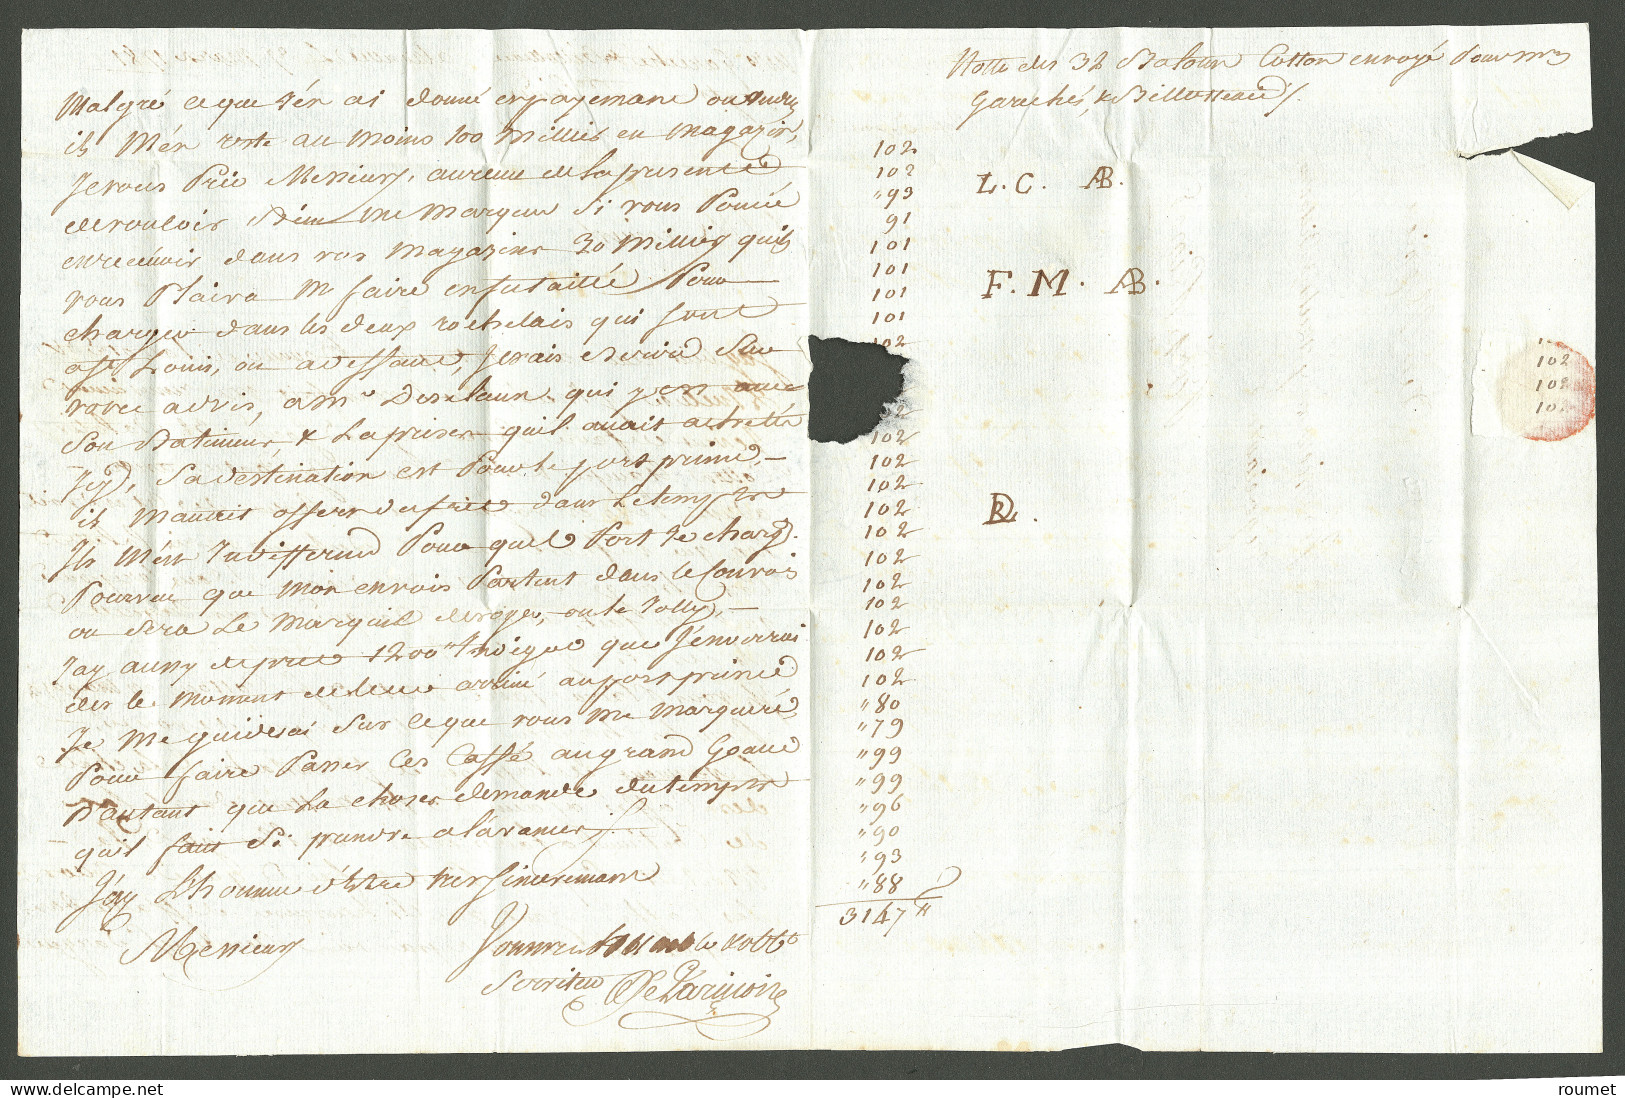 Malgré ce que j'en ai donné en payemant ou vendu
ils m'en reste au moins 100 milliés en magazin,
Je vous prie Messieurs, au reçu de la presente
de vouloir bien me marquer si vous pouvé
en recevoir dans vos magazins 30 milliés qu'ils
vous plaira me faire enfutaillé pour
charger dans les deux rochelais qui sont
a St Louis, ou a
votre advis, a mr qui y est avec
son batiment, & la prise qu'il avait achetté
Icy, sa destination est pour le port prince,
il m'aurait offert du frèt dans le temps &
Ils m'est Indifferend pour quel Port je charge
pourvu que mon envois partent dans le convois
ou sera le marquis de voyer, ou le Jolly,
J'ay aussy de pret 1200 # indigue que j'enverrai
des le moment de leur arrivé au port prince
Je me guiderai sur ce que vous me marqueré,
pour faire passer ces caffé au grand Goave
d'autant que la chose demande du temps &
qu'il faut s'i prendre a l'avance /.
J'ay l'honneur d'être tres sincerement
Messieurs
Votre le &
Serviteur De Parinoire
Notte des 32 Balour Cotton envoyé pour mrs
Garesché, & Billotteau /.
102
102
" 93
91
101
101
101
101
102
102
102
102
102
102
102
102
102
102
102
102
102
" 80
" 79
" 99
" 99
" 96
" 90
" 93
" 88
3147 #
L. C. AB.
F. M. AB.
102
102
102
roumet